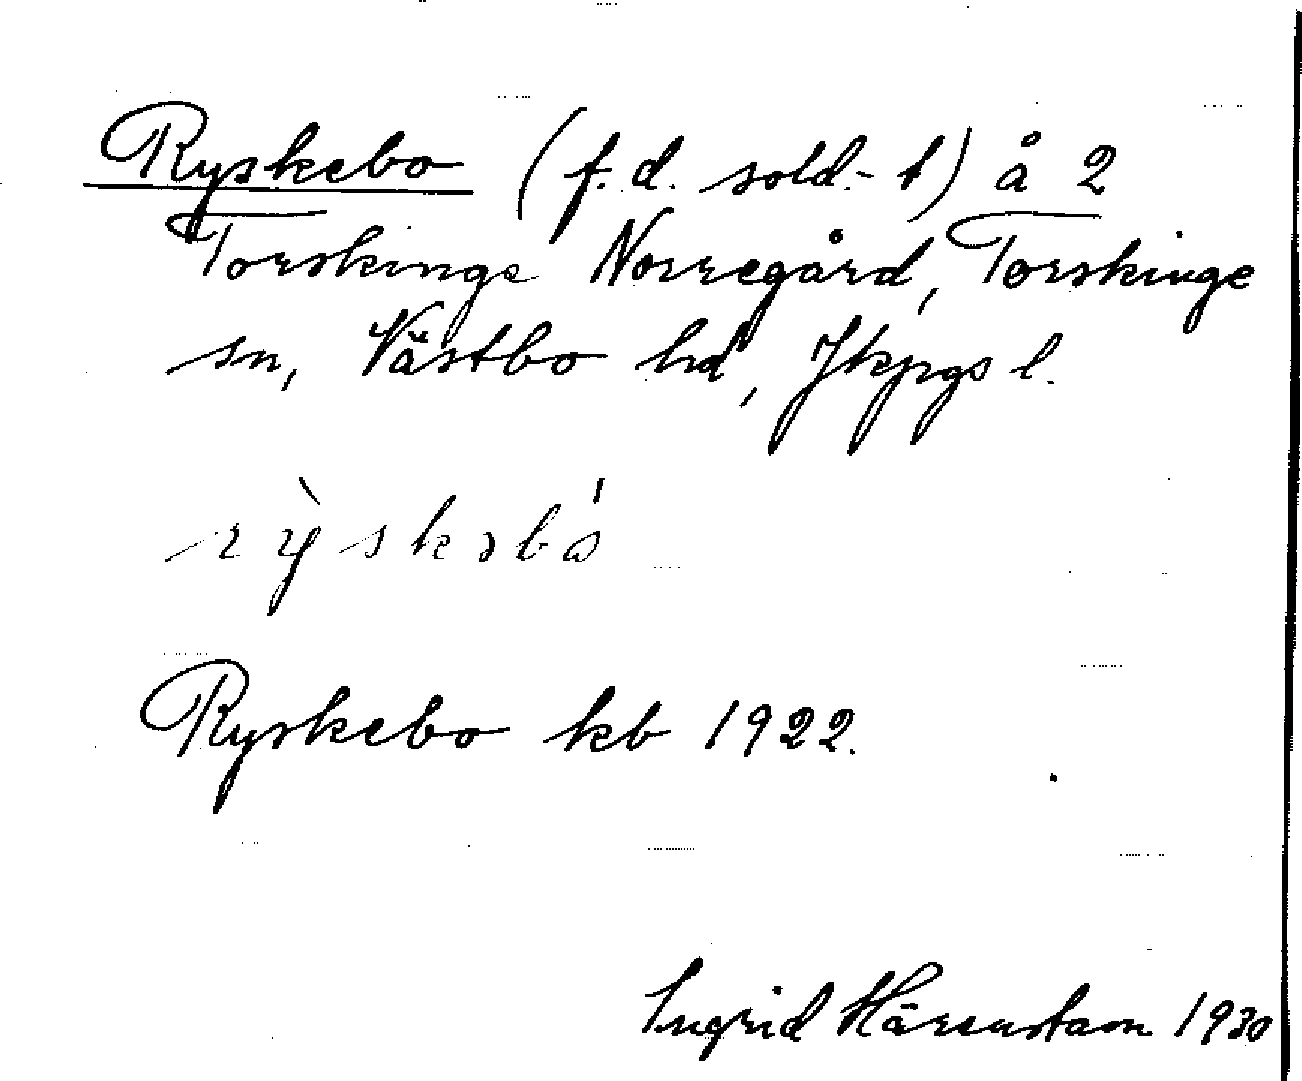 Ryskebo (f.d. sold.-t) å 2
Torskinge Norregård, Torskinge
sn, Västbo hd, Jkpgs l.
rỳskəbó
Ryskebo kb 1922.
Ingrid Härenstam 1930